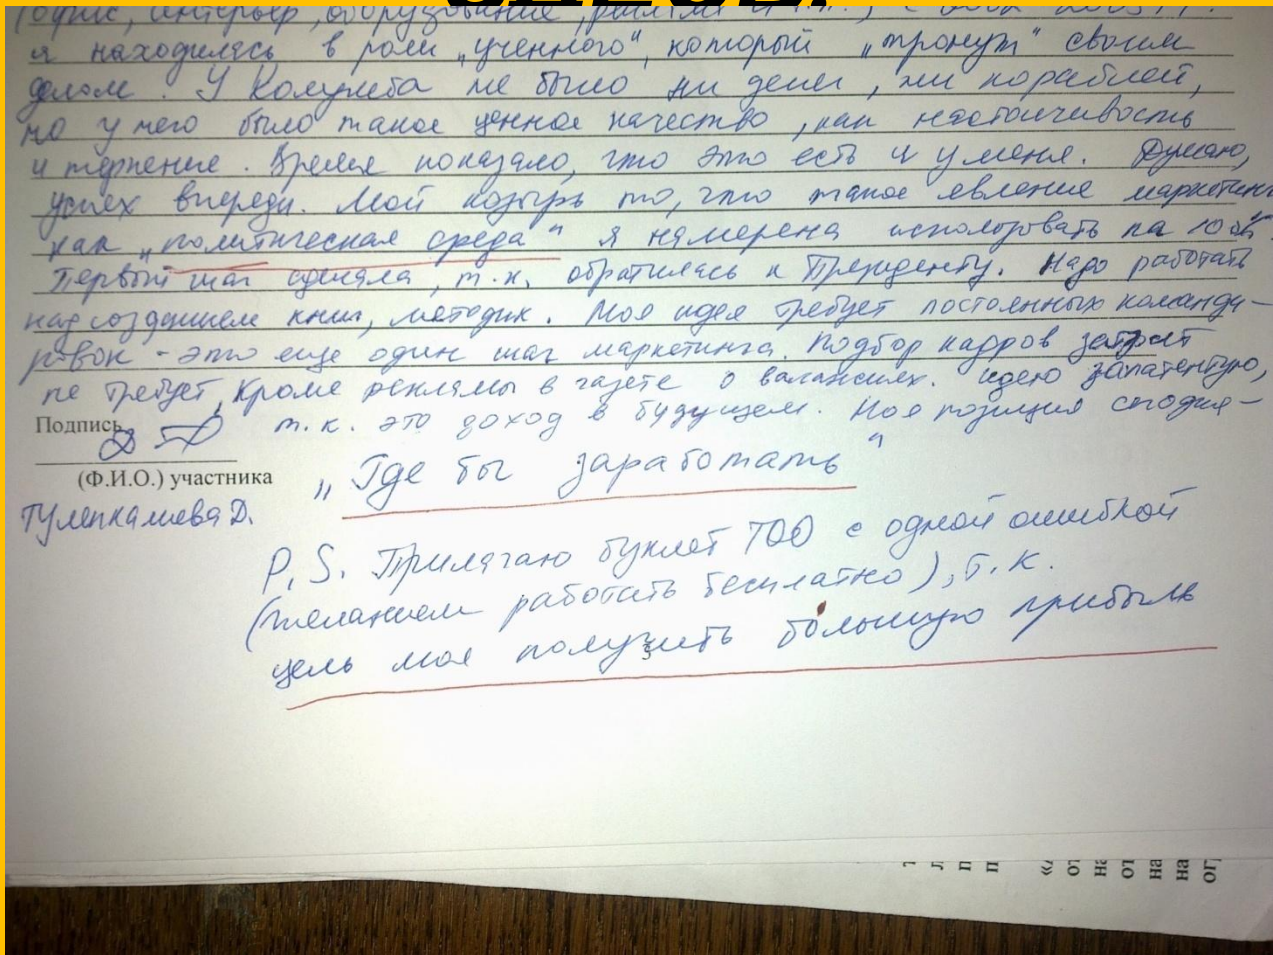 (офис, интерьер, оборудование,
я находилась в роли „ученного“, который „тронут“ своим
делом. У Колумба не было ни денег, ни кораблей,
но у него было такое ценное качество, как настойчивость
и терпение. Время показало, что это есть и у меня. Думаю,
успех впереди. Мой козырь то, что такое явление маркетинга
как „политическая среда“ я намерена использовать на 100%.
Первый шаг сделала, т.к. обратилась к Президенту. Надо работать
над созданием книг, методик. Моя идея требует постоянных команди-
ровок - это еще один шаг маркетинга. Подбор кадров затрат
не требует, кроме рекламы в газете о вакансиях. Идею запатентую,
т.к. это доход в будущем. Моя позиция сегодня -
Подпись
„Где бы заработать“
(Ф.И.О.) участника
Тулепкалиева Д.
P.S. Прилагаю буклет ТОО с одной ошибкой
(желанием работать бесплатно), т.к.
цель моя получить большую прибыль